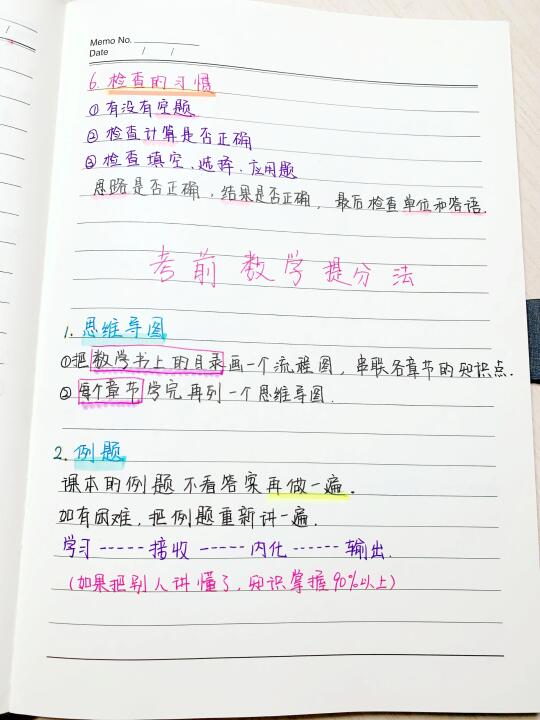 Memo No.
Date / /
6. 检查的习惯
① 有没有空题
② 检查计算是否正确
③ 检查填空、选择、应用题
思路是否正确，结果是否正确，最后检查单位和答语.
考前数学提分法
1. 思维导图
①把数学书上的目录画一个流程图，串联各章节的知识点.
② 每个章节学完再列一个思维导图.
2. 例题
课本的例题不看答案再做一遍.
如有困难，把例题重新讲一遍.
学习-----接收-----内化------输出.
(如果把别人讲懂了，知识掌握90%以上)